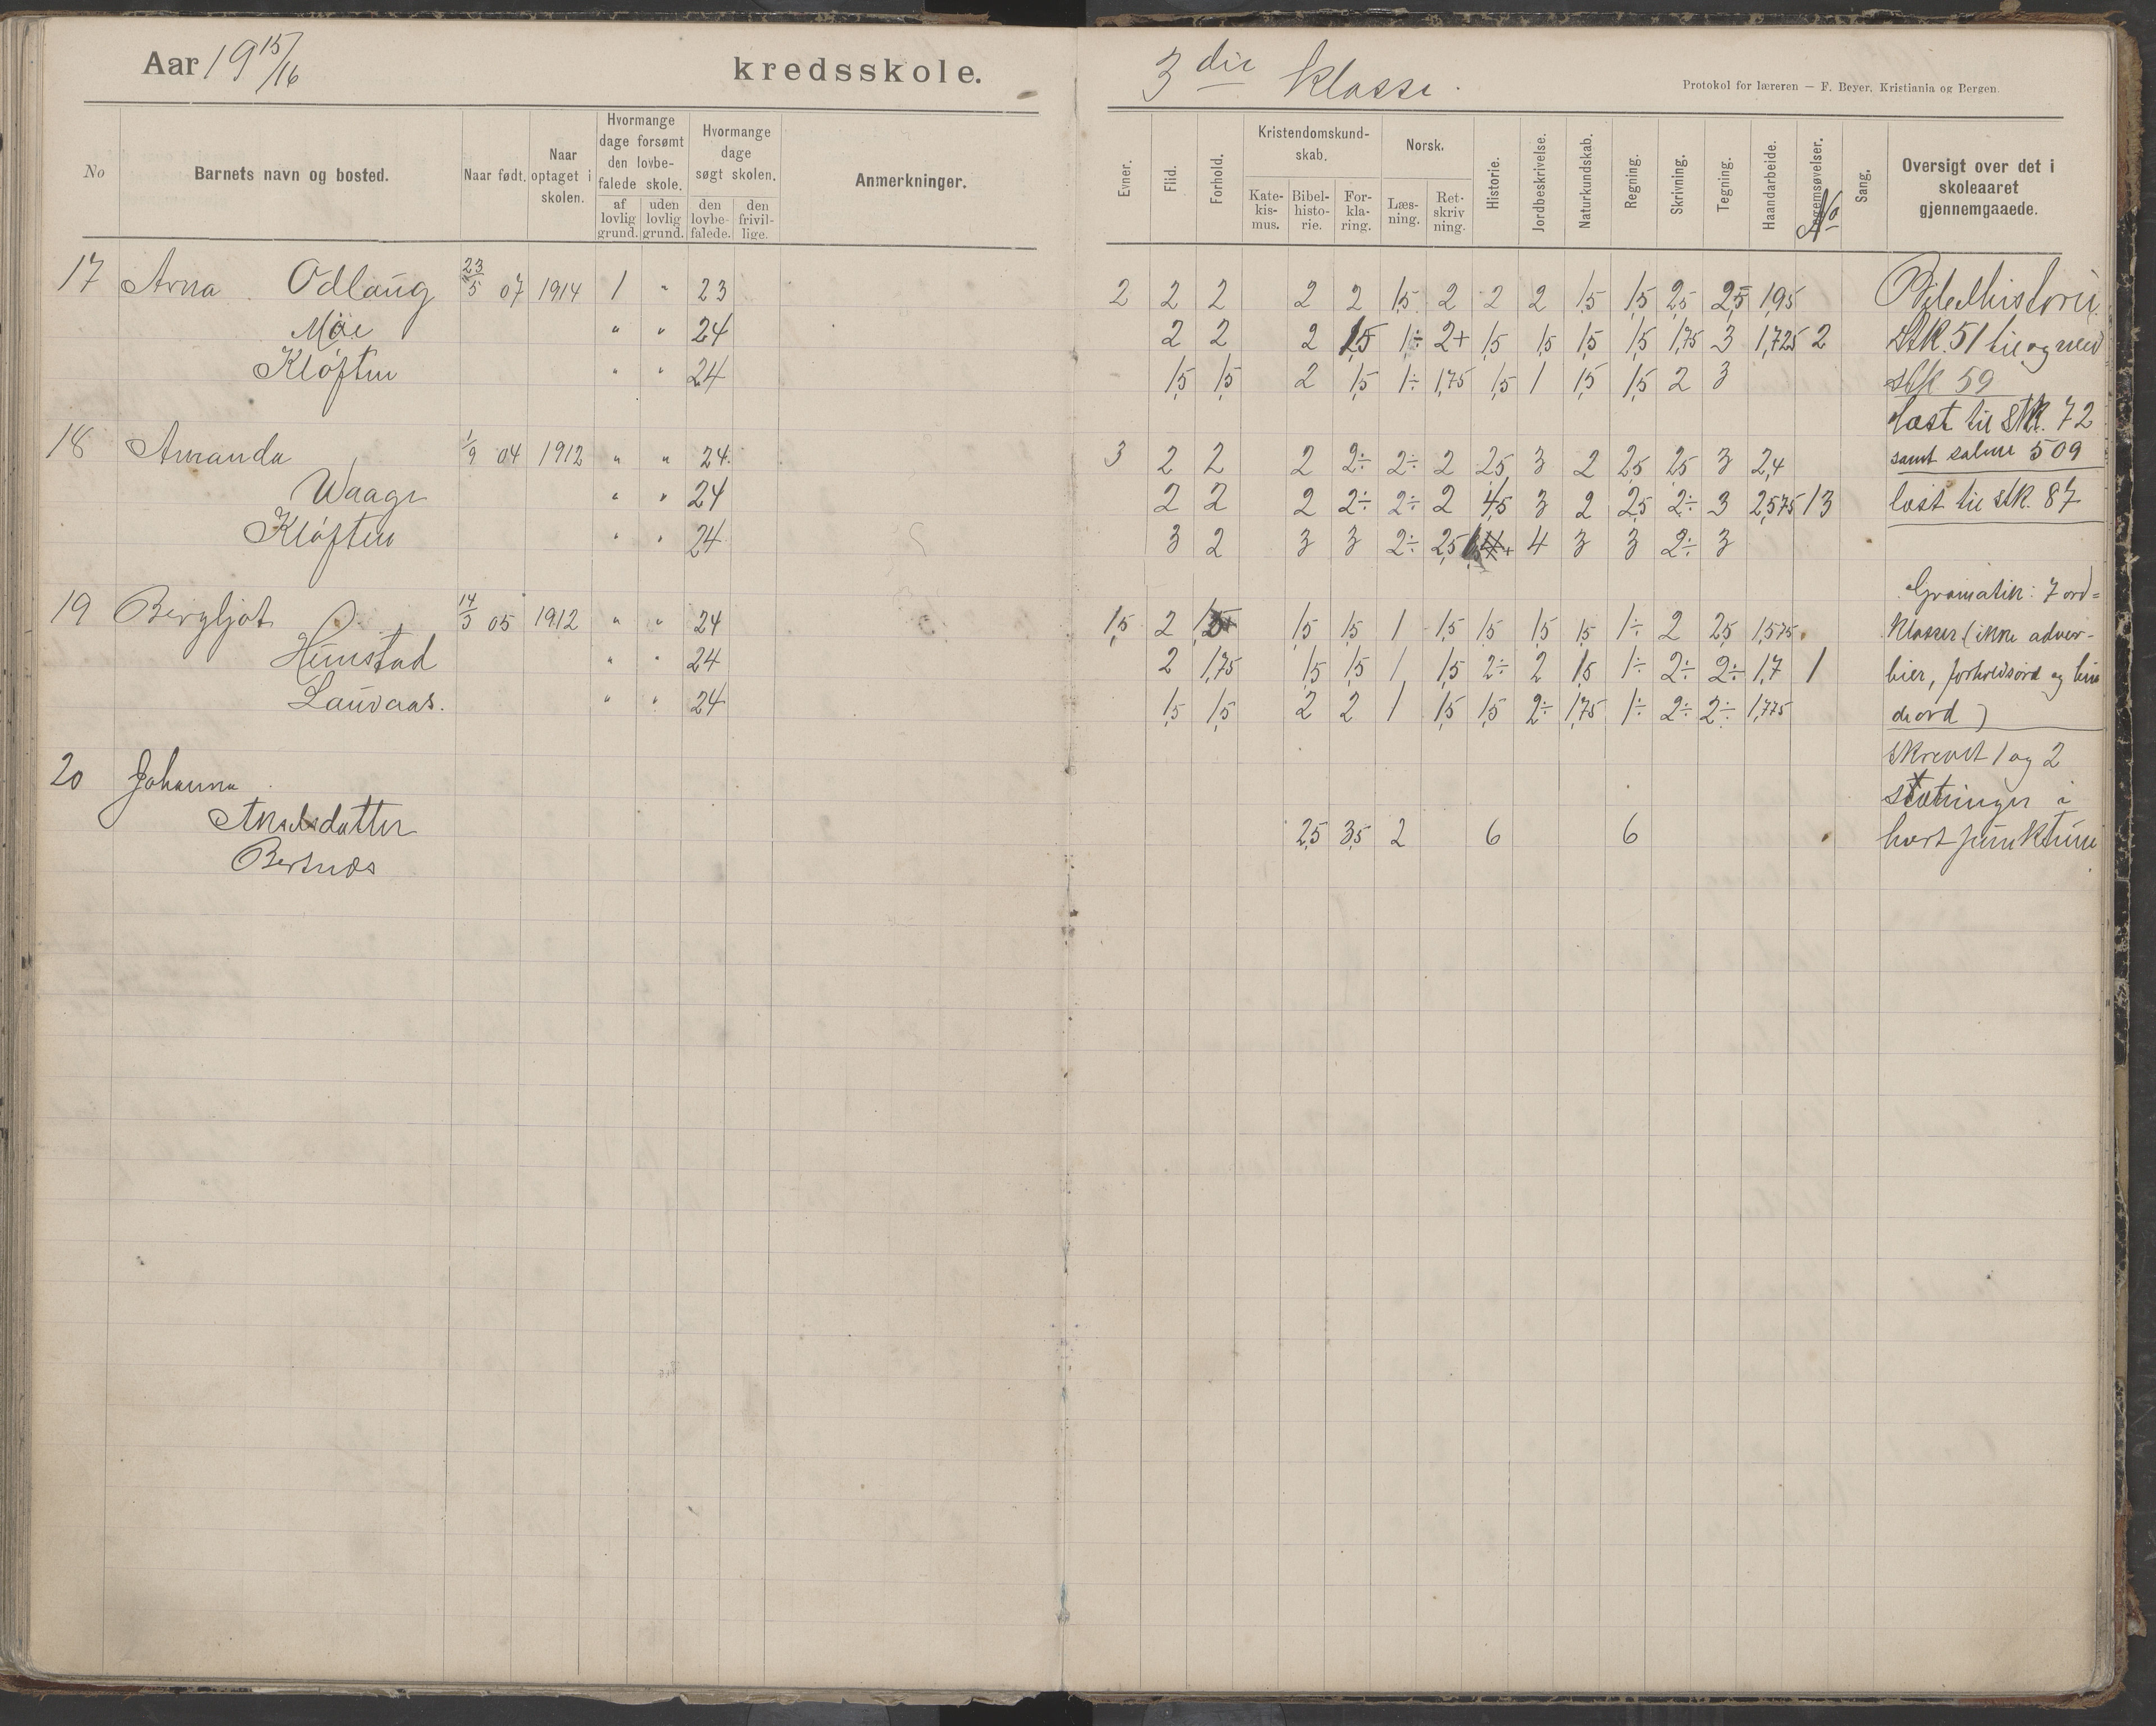 Aar 19 15/16 kredsskole.
3 die klasse.
Protokol for læreren — F. Beyer, Kristiania og Bergen.
No
Barnets navn og bosted.
Naar født.
Naar optaget i skolen.
Hvormange dage forsømt den lovbefalede skole.
af lovlig grund.
uden lovlig grund.
Hvormange dage søgt skolen.
den lovbefalede.
den frivillige.
Anmerkninger.
Evner.
Flid.
Forhold.
Kristendomskundskab.
Katekismus.
Bibelhistorie.
Forklaring.
Norsk.
Læsning.
Retskrivning.
Historie.
Jordbeskrivelse.
Naturkundskab.
Regning.
Skrivning.
Tegning.
Haandarbeide.
Legemsøvelser.
No
Sang.
Oversigt over det i skoleaaret gjennemgaaede.
17 Arna Odlaug 23/5 07 1914 1 " 23 2 2 2 2 2 1,5 2 2 2 1,5 1,5 2,5 2,5 1,95 Bibelhistorie
Moe " " 24 2 2 2 1,5 1÷ 2+ 1,5 1,5 1,5 1,5 1,75 3 1,725 2 Stk. 51 til og med
Kløften " " 24 1,5 1,5 2 1,5 1÷ 1,75 1,5 1 1,5 1,5 2 3 stk 59
læst til stk. 72
18 Amanda 1/9 04 1912 " " 24. 3 2 2 2 2÷ 2÷ 2 2,5 3 2 2,5 2,5 3 2,4 samt salme 509
Waage " " 24 2 2 2 2÷ 2÷ 2 4,5 3 2 2,5 2÷ 3 2,575 13 læst til stk. 87
Kløften " " 24 3 2 3 3 2÷ 2,5 4 3 3 2÷ 3
Gramatik: 7 ord=
19 Bergljot O. 14/3 05 1912 " " 24 1,5 2 1,5 1,5 1 1,5 1,5 1,5 1,5 1÷ 2 2,5 1,575 klasser (ikke adver-
Hunstad " " 24 2 1,75 1,5 1,5 1 1,5 2÷ 2 1,5 1÷ 2÷ 2÷ 1,7 1 bier, forholdsord og bin
Lauvaas. " " 24 1,5 1,5 2 2 1 1,5 1,5 2÷ 1,75 1÷ 2÷ 2÷ 1,775 deord)
skrevet 1 og 2
20 Johanna sætninger i
Akselsdatter 2,5 3,5 2 6 6 hvert punktum
Bersnæs